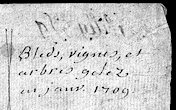 Bleds, vignes, et
arbres gelez
en janv. 1709